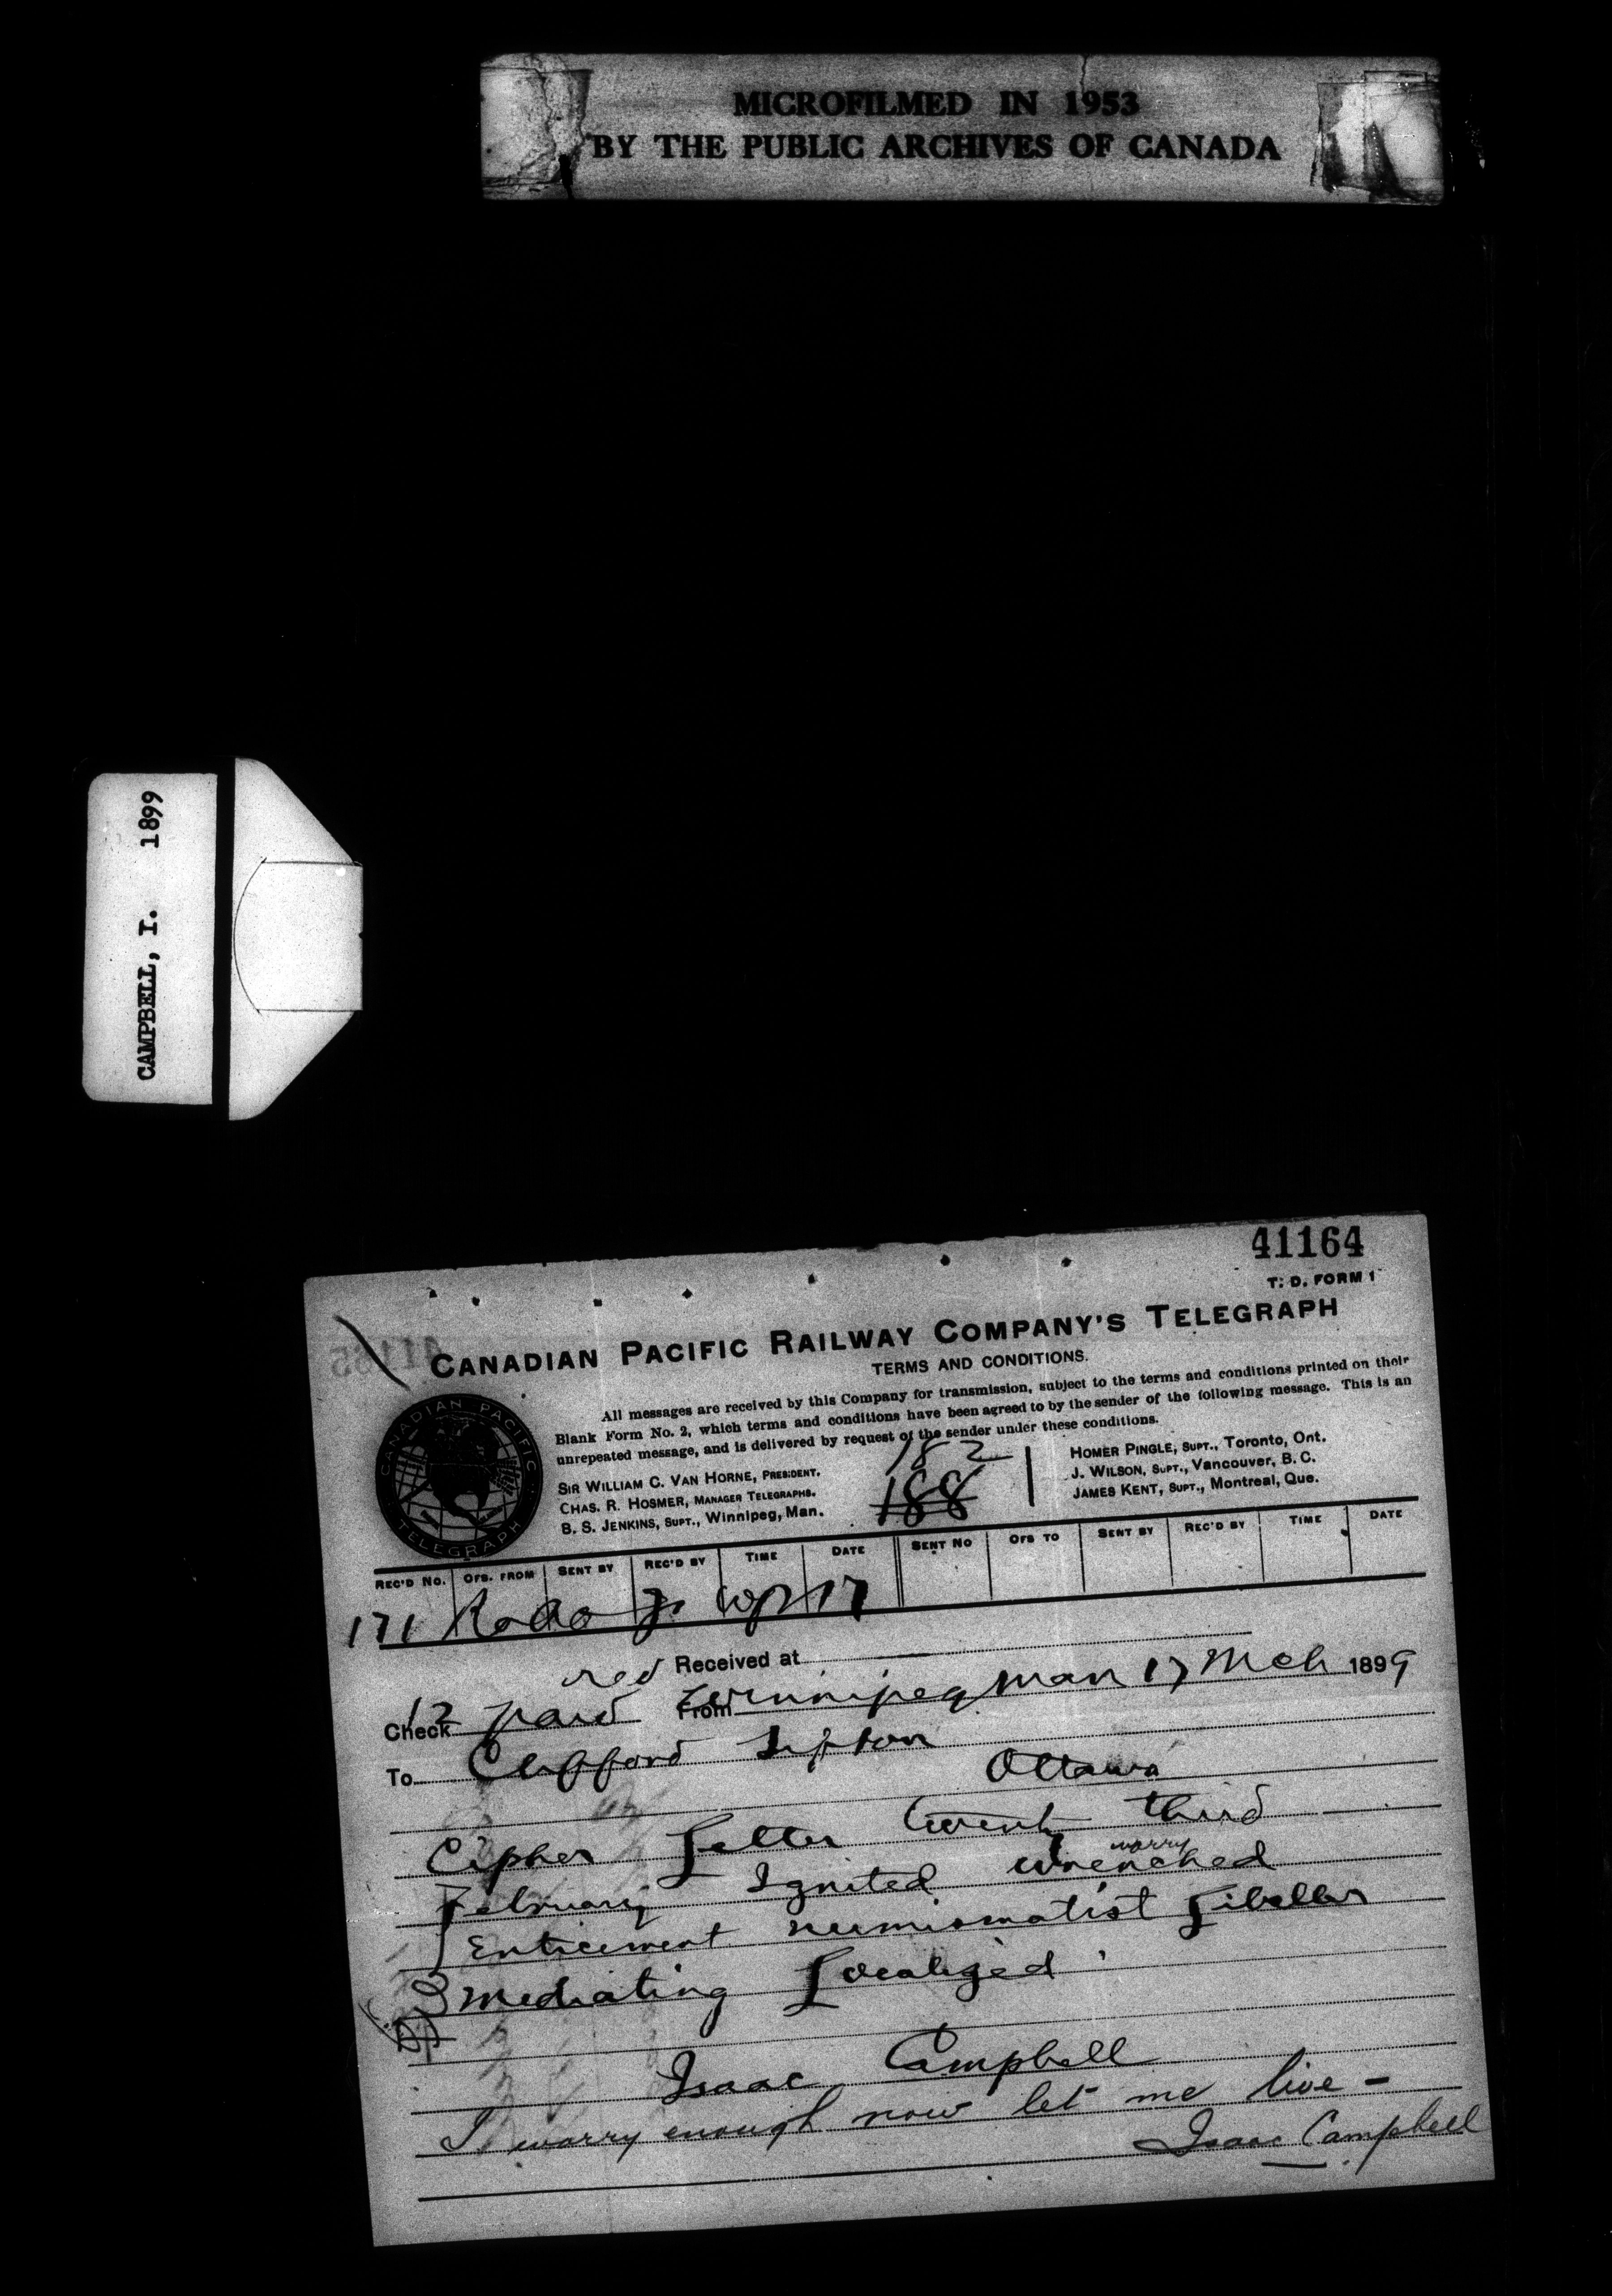 MICROFILMED IN 1953
BY THE PUBLIC ARCHIVES OF CANADA
CAMPBELL, I. 1899
41164
T. D. FORM 1
CANADIAN PACIFIC RAILWAY COMPANY'S TELEGRAPH
TERMS AND CONDITIONS.
All messages are received by this Company for transmission, subject to the terms and conditions printed on their
Blank Form No. 2, which terms and conditions have been agreed to by the sender of the following message. This is an
unrepeated message, and is delivered by request of the sender under these conditions.
CANADIAN PACIFIC TELEGRAPH
182
188
SIR WILLIAM C. VAN HORNE, PRESIDENT.
CHAS. R. HOSMER, MANAGER TELEGRAPHS.
B. S. JENKINS, SUPT., Winnipeg, Man.
HOMER PINGLE, SUPT., Toronto, Ont.
J. WILSON, SUPT., Vancouver, B. C.
JAMES KENT, SUPT., Montreal, Que.
REC'D NO. OFS. FROM SENT BY REC'D BY TIME DATE SENT NO OFS TO SENT BY REC'D BY TIME DATE
171 17
Received at
Check 12 paid From Winnipeg Man 17 Mch 1899
To Clifford Sifton
Ottawa
Cipher Letter twenty third
worry
February Ignited wrenched
Enticement numismatist Libeller
Mediating Localized
Isaac Campbell
I worry enough now let me live -
Isaac Campbell